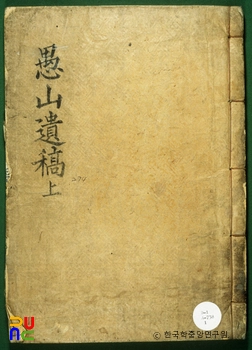 愚山遺稿 上
ⓒ 한국학중앙연구원